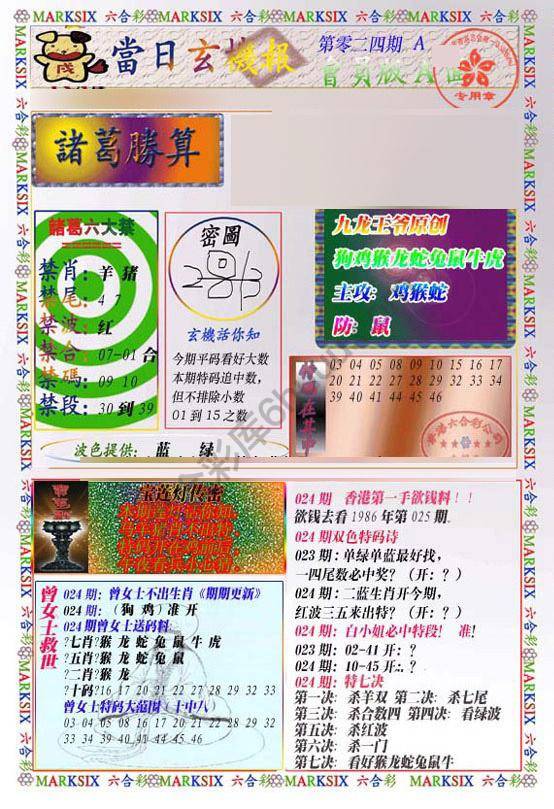 MARKSIX 六合彩 MARKSIX 六合彩 MARKSIX 六合彩 MARKSIX 六合彩 MARKSIX
當日玄機報
第零二四期 A
會員版A面
专用章
諸葛勝算
諸葛六大禁
禁肖：羊 猪
禁尾：4 7
禁波：红
禁合：07-01 合
禁碼：09 10
禁段：30 到 39
密圖
玄機話你知
今期平码看好大数
本期特码追中数，
但不排除小数
01 到 15 之数
九龙王爷原创
狗鸡猴龙蛇兔鼠牛虎
主攻：鸡猴蛇
防：鼠
03 04 05 08 09 10 15 16 17
20 21 22 27 28 29 32 33 34
39 40 41 44 45 46
波色提供： 蓝 绿
宝莲灯传密
曾女士救世
024 期：曾女士不出生肖《期期更新》
024 期：（狗 鸡）准 开
024 期曾女士送码料：
?七肖?猴 龙 蛇 兔 鼠 牛 虎
?五肖?猴 龙 蛇 兔 鼠
?二肖?猴 龙
?十码?16 17 20 21 22 27 28 29 32 33
曾女士特码大范围（十中八）
03 04 05 08 16 17 20 21 22 28 29 32
33 34 39 40 41 44 45 46
024 期： 香港第一手欲钱料！！
欲钱去看 1986 年第 025 期。
024 期双色特码诗
023 期：单绿单蓝最好找，
一四尾数必中奖？（开：？）
024 期：二蓝生肖开今期，
红波三五来出特？（开：？）
024 期：白小姐必中特段！ 准！
023 期：02-41 开：？
024 期：10-45 开：？
024 期：特七决
第一决：杀羊双 第二决：杀七尾
第三决：杀合数四 第四决：看绿波
第五决：杀红波
第六决：杀一门
第七决：看好猴龙蛇兔鼠牛
MARKSIX 六合彩 MARKSIX 六合彩 MARKSIX 六合彩 MARKSIX 六合彩 MARKSIX